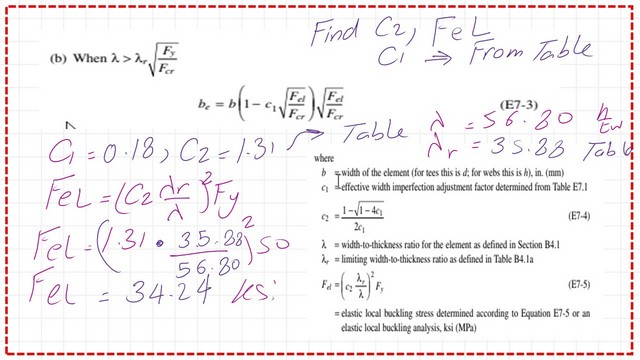 Find C2, FeL
C1 → From Table
(b) When λ > λr √(Fy/Fcr)
be = b(1 − c1 √(Fel/Fcr)) √(Fel/Fcr) (E7-3)
C1 = 0.18, C2 = 1.31 → Table
λ = 56.80 h/tw
λr = 35.88 Table
FeL = (C2 λr/λ)² Fy
FeL = (1.31 • 35.88/56.80)² 50
FeL = 34.24 ksi
where
b = width of the element (for tees this is d; for webs this is h), in. (mm)
c1 = effective width imperfection adjustment factor determined from Table E7.1
c2 = (1 − √(1 − 4c1))/(2c1) (E7-4)
λ = width-to-thickness ratio for the element as defined in Section B4.1
λr = limiting width-to-thickness ratio as defined in Table B4.1a
Fel = (c2 λr/λ)² Fy (E7-5)
= elastic local buckling stress determined according to Equation E7-5 or an
elastic local buckling analysis, ksi (MPa)